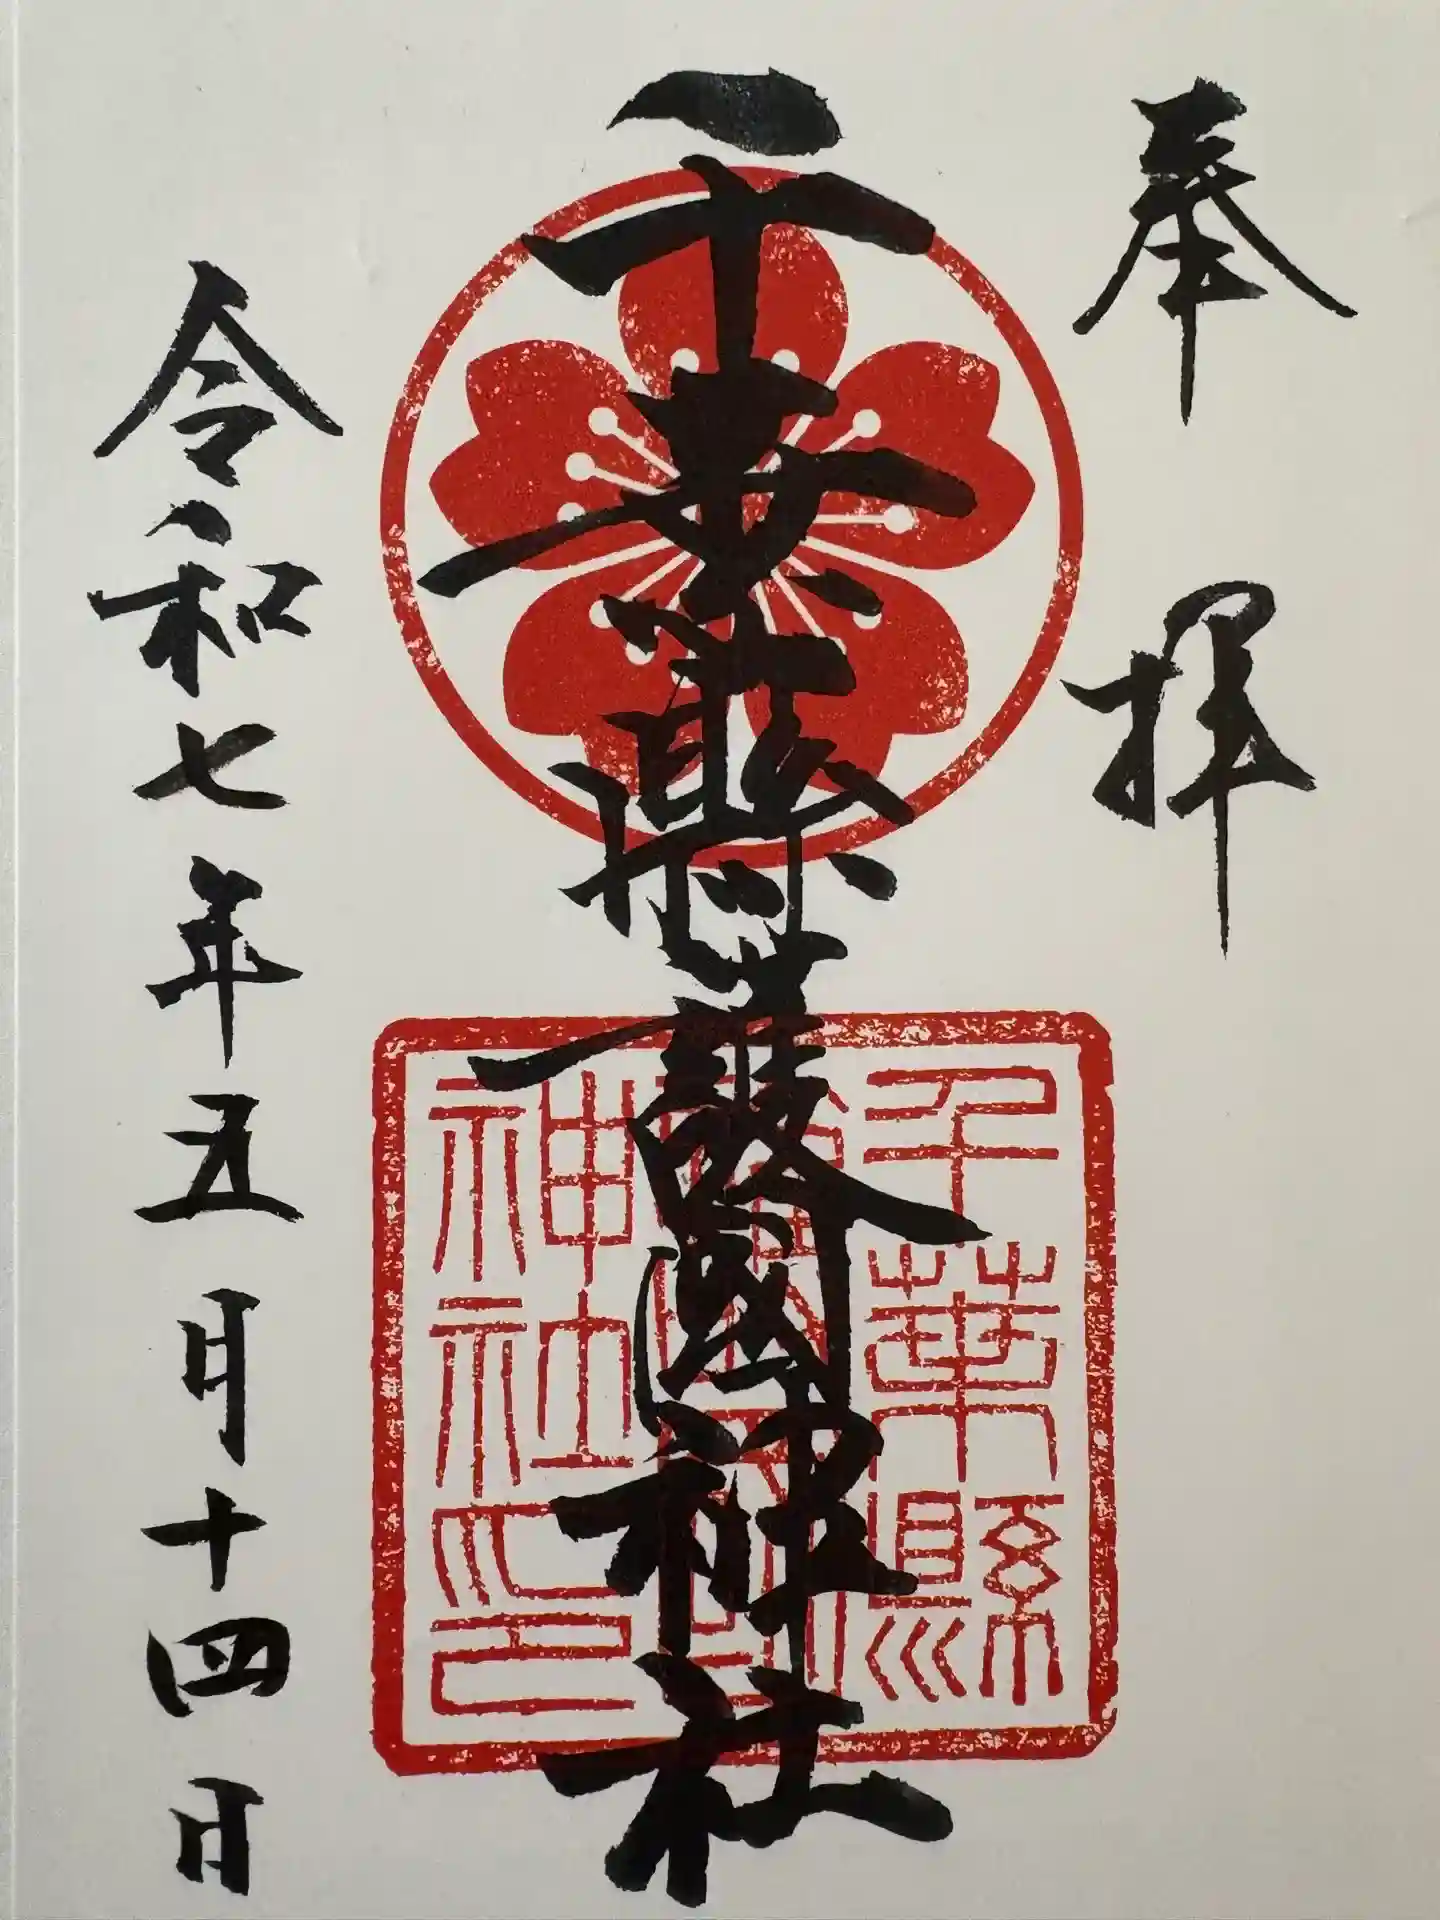 奉拝
千葉縣護國神社
千葉縣
神社印
令和七年五月十四日